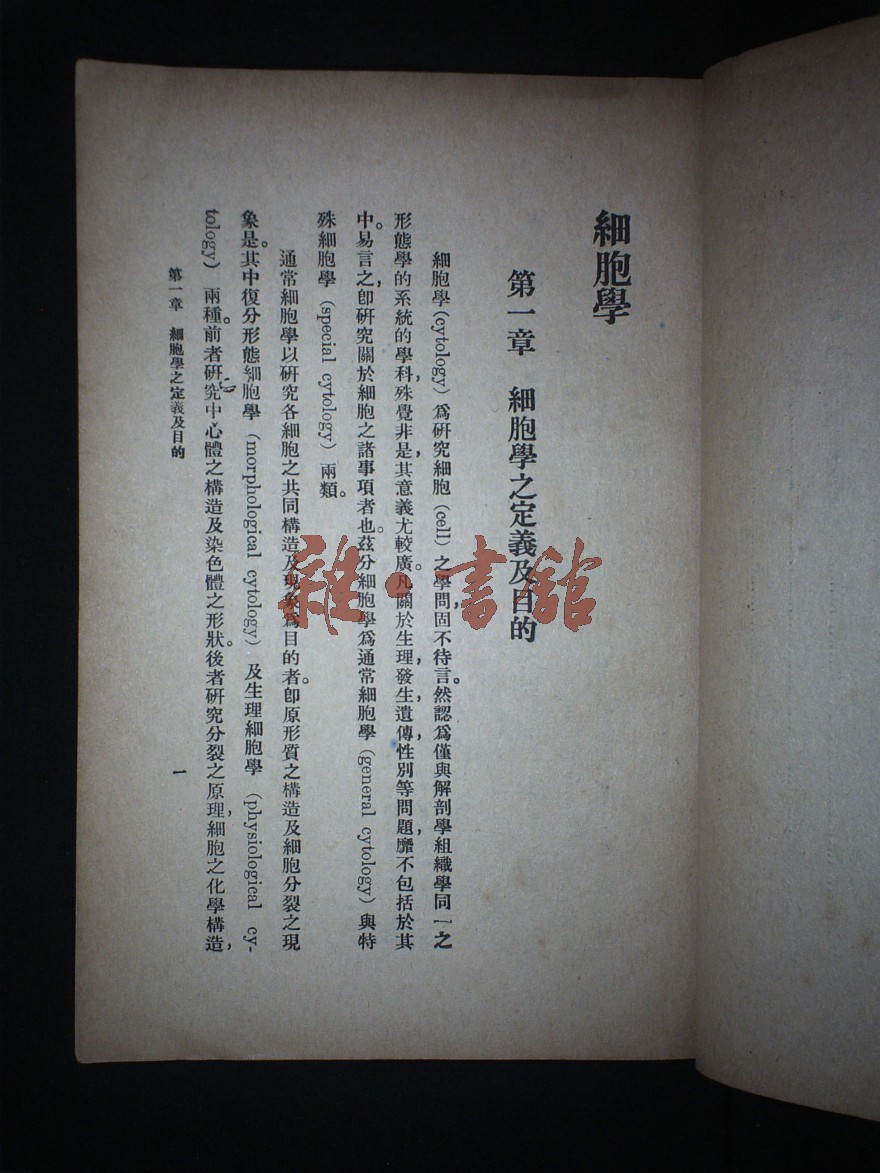 細胞學
第一章　細胞學之定義及目的
細胞學(cytology)爲研究細胞(cell)之學問,固不待言。然認爲僅與解剖學組織學同一之
形態學的系統的學科,殊覺非是,其意義尤較廣。凡關於生理,發生,遺傳,性別等問題,靡不包括於其
中。易言之,卽研究關於細胞之諸事項者也。茲分細胞學爲通常細胞學(general cytology)與特
殊細胞學(special cytology)兩類。
通常細胞學以研究各細胞之共同構造及現象爲目的者。卽原形質之構造及細胞分裂之現
象是。其中復分形態細胞學(morphological cytology)及生理細胞學(physiological cy-
tology)兩種。前者研究中心體之構造及染色體之形狀。後者研究分裂之原理,細胞之化學構造,
第一章　細胞學之定義及目的　一
雜·書館